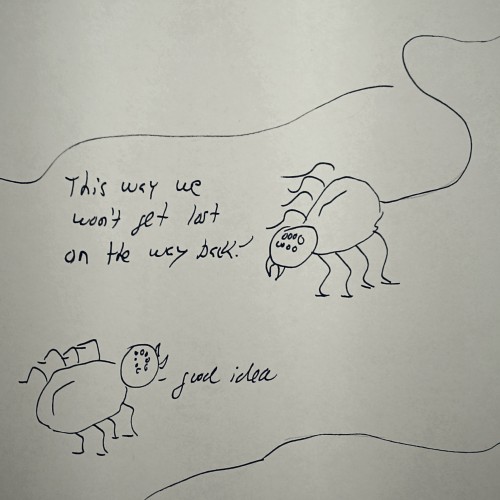 This way we
won't get lost
on the way back.
good idea